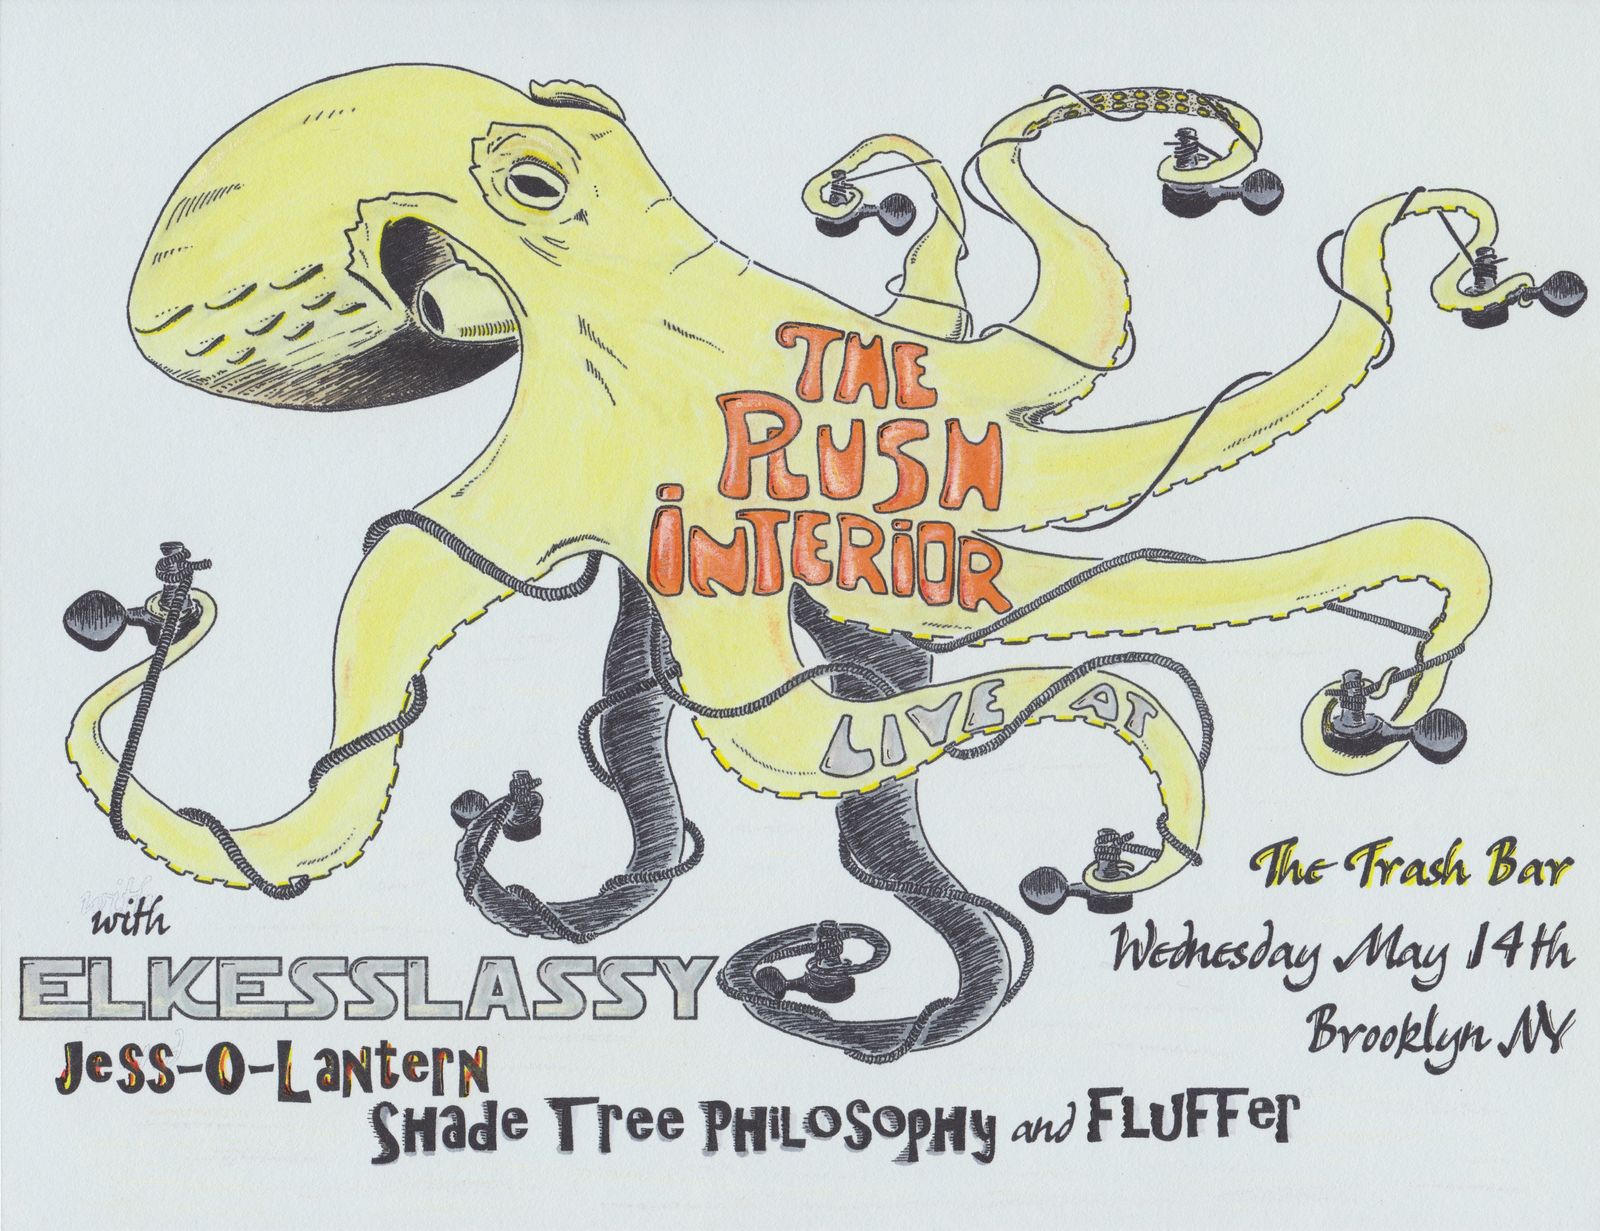 THE
PLUSH
iNTERiOR
LIVE AT
The Trash Bar
Wednesday May 14th
Brooklyn NY
with
ELKESSLASSY
Jess-O-Lantern
Shade Tree Philosophy and Fluffer